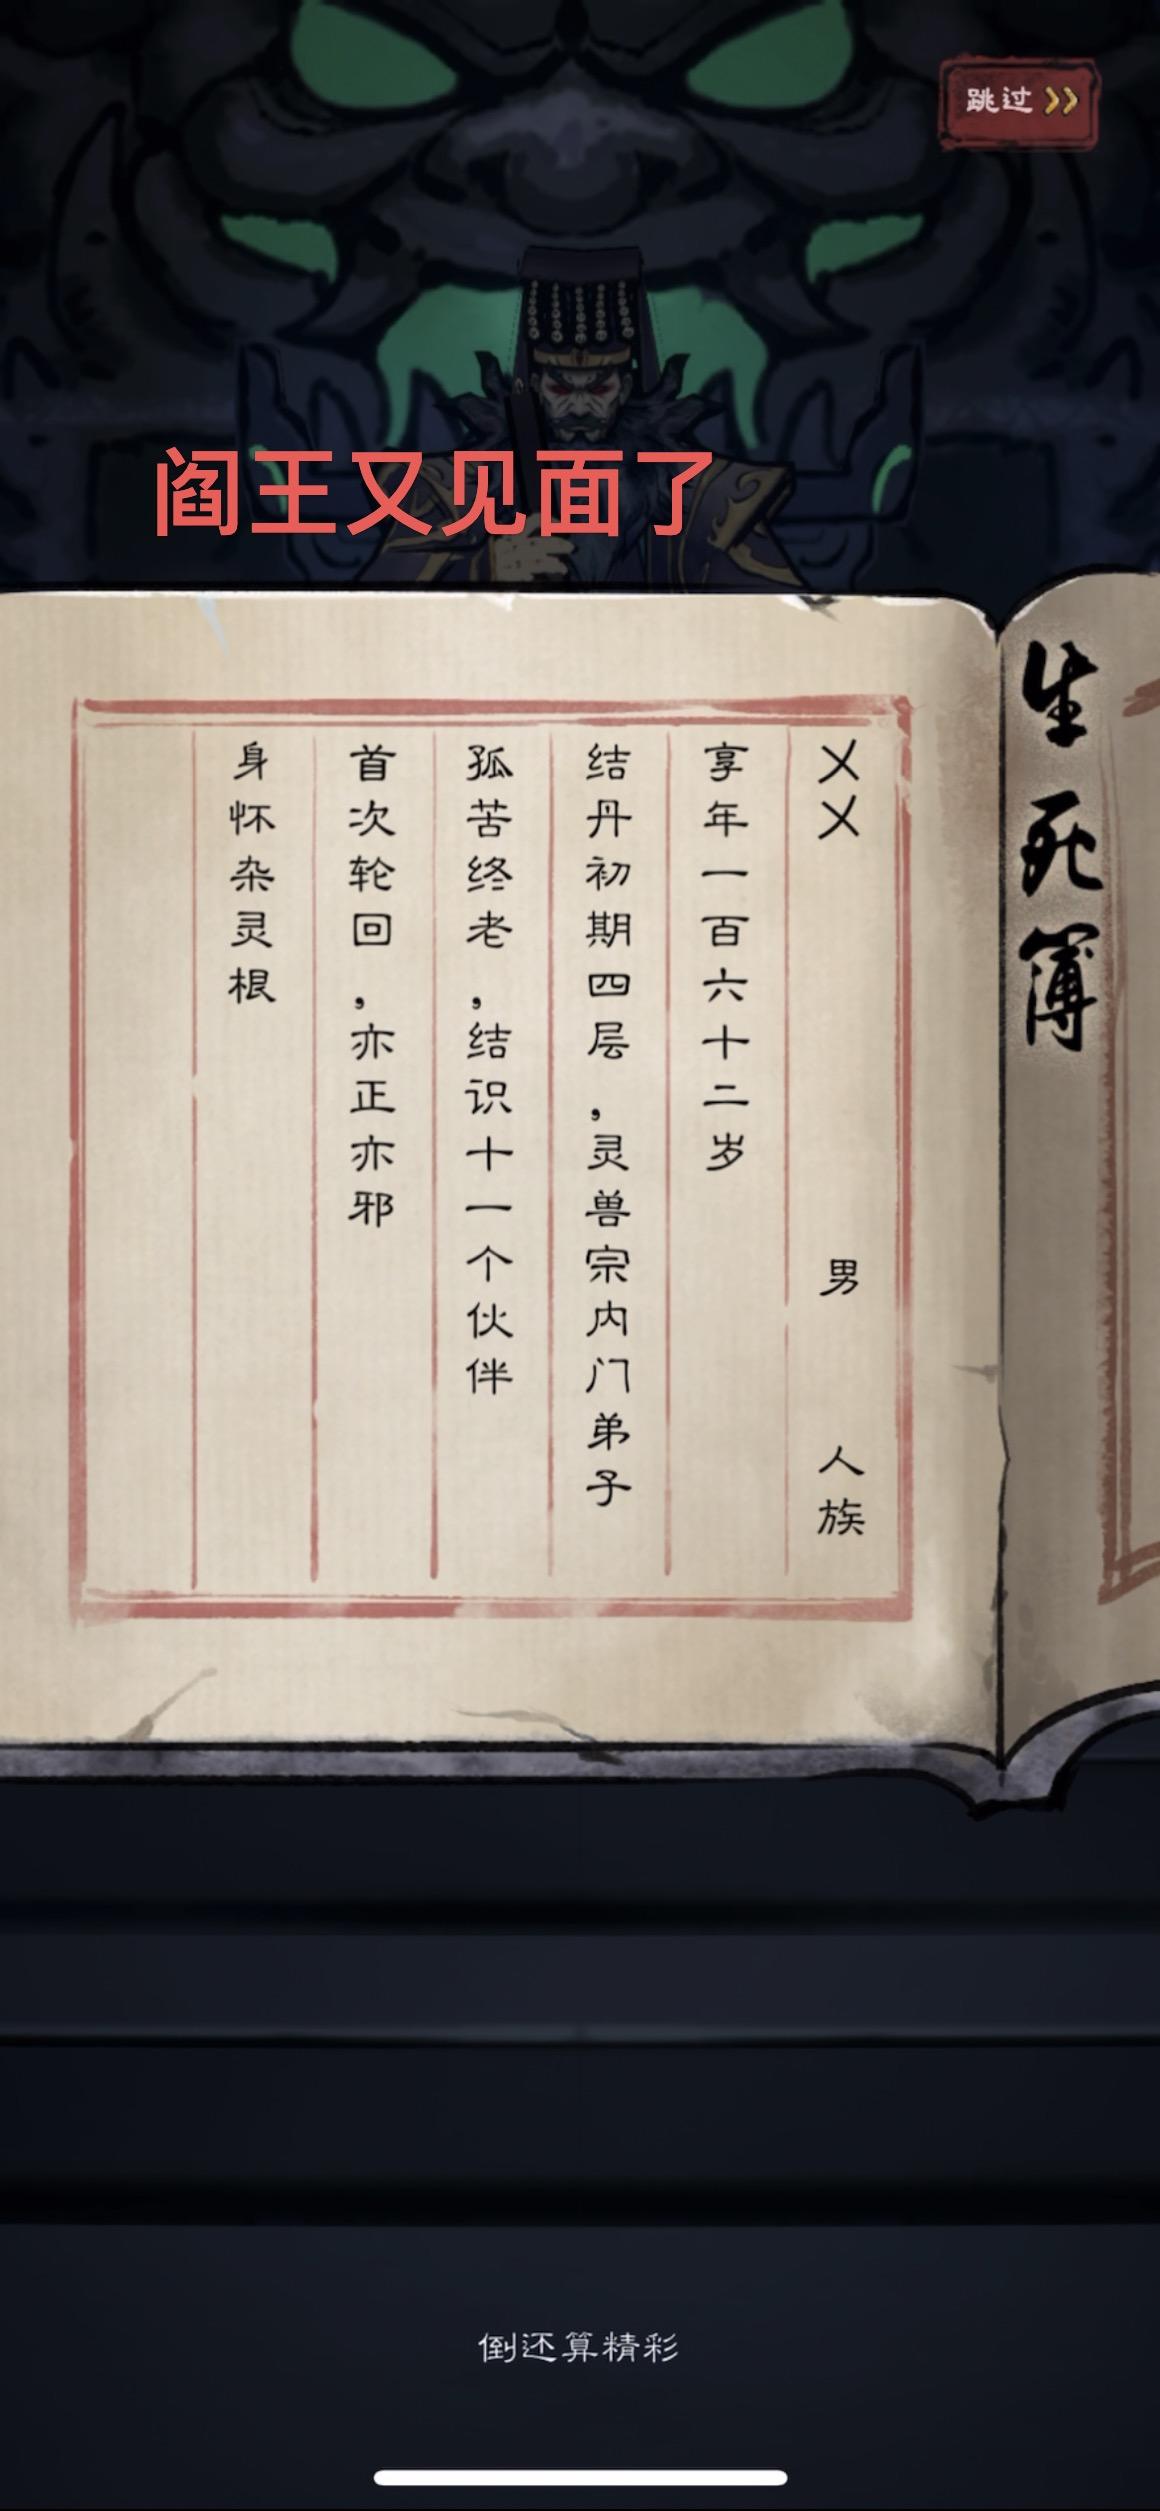 跳过
阎王又见面了
生死簿
乂乂 男 人族
享年一百六十二岁
结丹初期四层,灵兽宗内门弟子
孤苦终老,结识十一个伙伴
首次轮回,亦正亦邪
身怀杂灵根
倒还算精彩